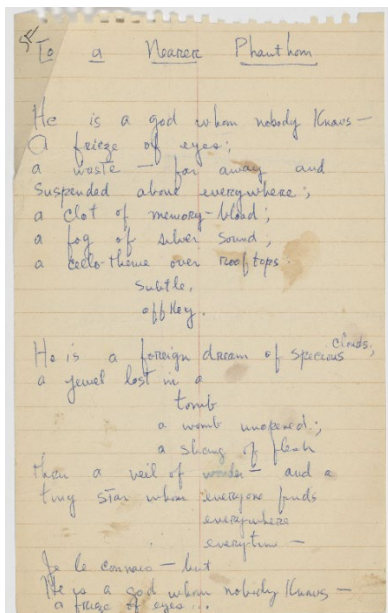 To a Nearer Phanthom
He is a god whom nobody Knows —
A frieze of eyes;
a waste — far away and
Suspended above everywhere;
a clot of memory-blood;
a fog of silver sound,
a cello-theme over rooftops.
subtle,
off key.
He is a foreign dream of specious clouds;
a jewel lost in a
tomb
a womb unopened;
a of flesh
then a veil of wonder — and a
tiny star whom everyone finds
everywhere
everytime —
Je le connais — but
He is a god whom nobody Knows —
a frieze of eyes ...